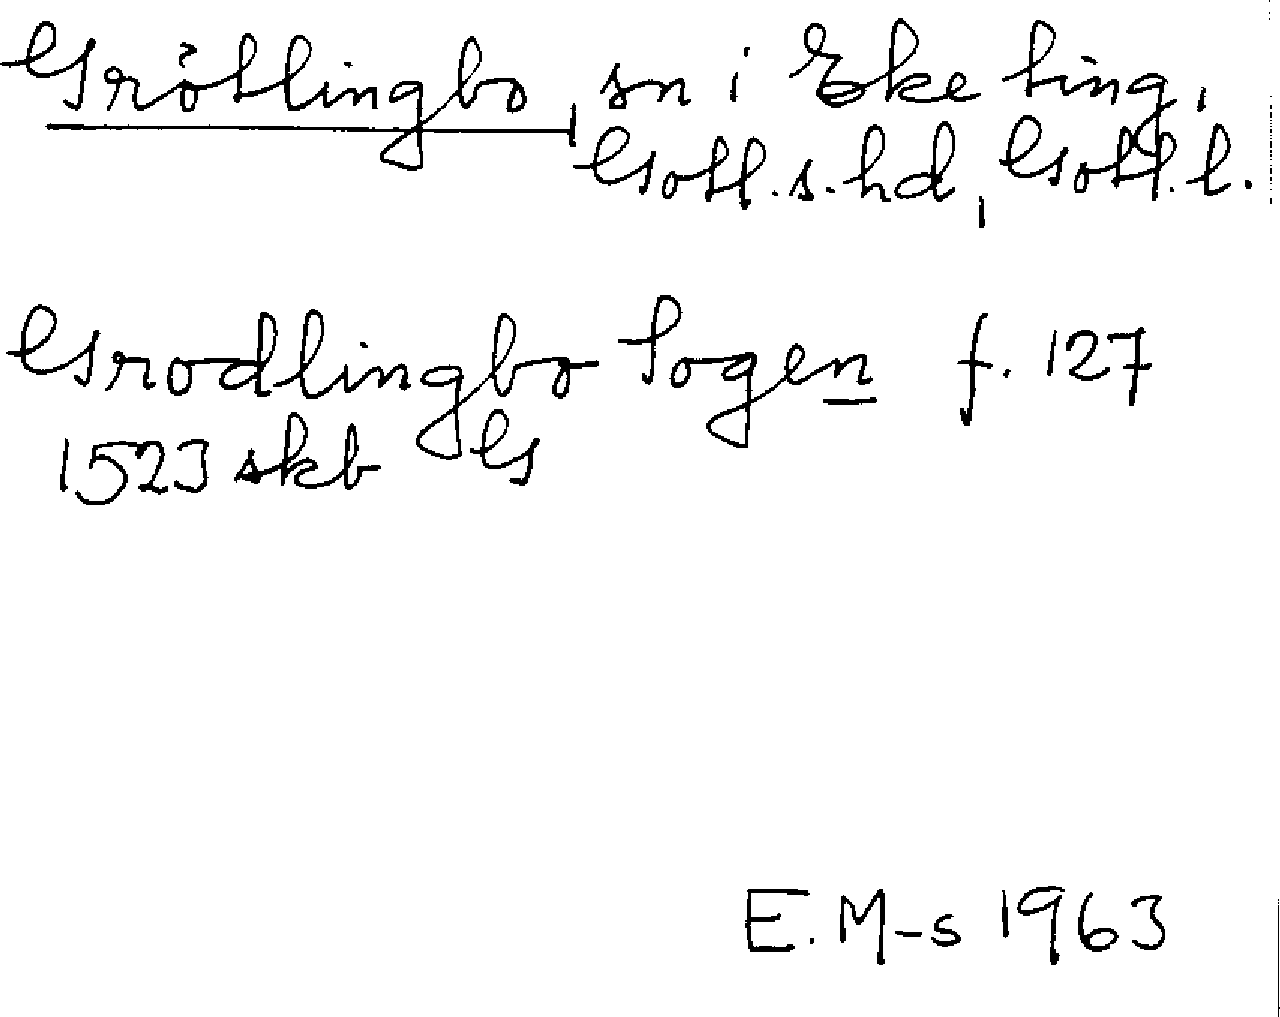 Grötlingbo, sn i Eke ting,
Gotl. s. hd, Gotl. l.
Grodlingbo Sogen f. 127
1523 skb G
E. M-s 1963